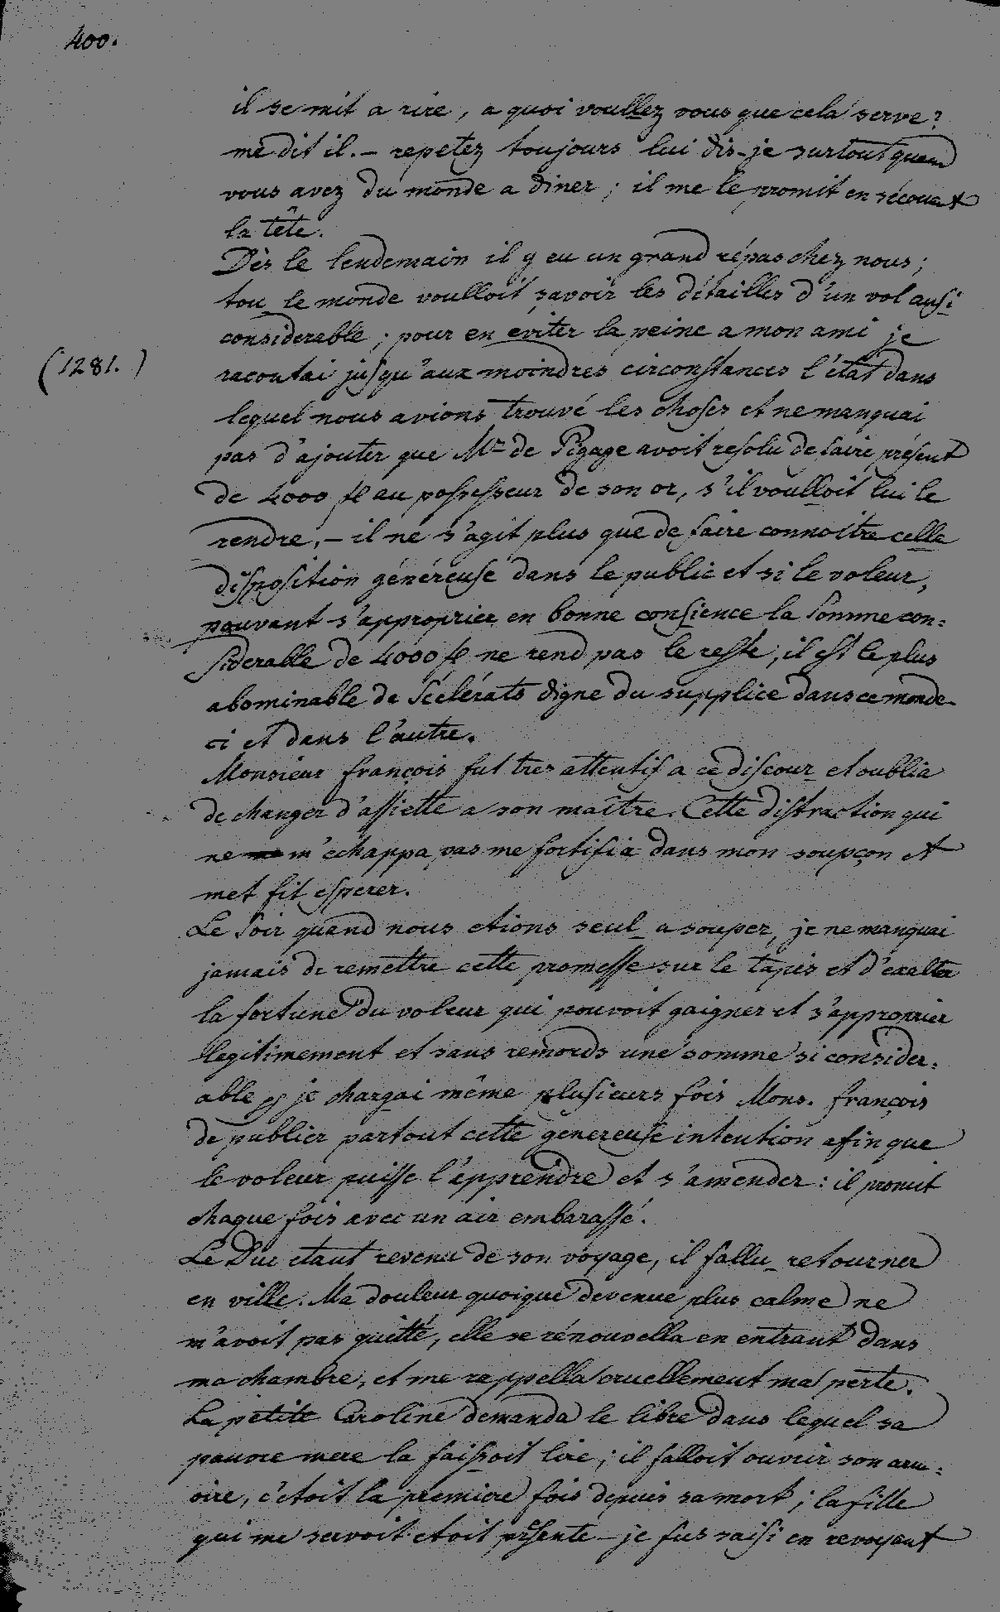 400.
il se mit a rire, a quoi voullez vous que cela serve?
me dit il. – repetez toujours lui dis-je surtout quand
vous avez du monde a diner; il me le promit en sécouant
la tête.
Dès le lendemain il y eu un grand répas chez nous;
tou le monde voulloit savoir les détailles d'un vol ausi
considerable; pour en eviter la peine a mon ami je
(1281.)
racontai jusqu'aux moindres circonstances l'état dans
lequel nous avions trouvé les choses et ne manquai
pas d'ajouter que Mr de Pigage avoit resolu de faire présent
de 4000 fl au possesseur de son or, s'il voulloit lui le
rendre. – il ne s'agit plus que de faire connoitre celle
disposition généreuse dans le public et si le voleur,
pouvant s'approprier en bonne consience la somme con:
siderable de 4000 fl ne rend pas le reste, il est le plus
abominable de scélérats digne du supplice dans ce monde-
ci et dans l'autre.
Monsieur françois fut tres attentif a ce discour et oublia
de changer d'assiette a son maître. Cette distraction qui
ne m'échappa pas me fortifia dans mon soupçon et
met fit esperer.
Le Soir quand nous etions seul a souper, je ne manquai
jamais de remettre cette promesse sur le tapis et d'exalter
la fortune du voleur qui pouvoit gaigner et s'approprier
legitimement et sans remords une somme si consider:
able je chargai même plusieurs fois Mons. françois
de publier partout cette genereuse intention afin que
le voleur puisse l'apprendre et s'amender: il promit
chaque fois avec un air embarassé.
Le Duc etant revenu de son voyage, il fallu retourner
en ville. Ma douleur quoique devenue plus calme ne
m'avoit pas quitté, elle se rénouvella en entrant dans
ma chambre, et me rappella cruellement ma perte.
La petite Caroline demanda le libre dans lequel sa
pauvre mere la faisoit lire; il falloit ouvrir son arm:
oire, c'étoit la premiere fois depuis sa mort; la fille
qui me servoit etoit présente – je fus saisi en revoyant